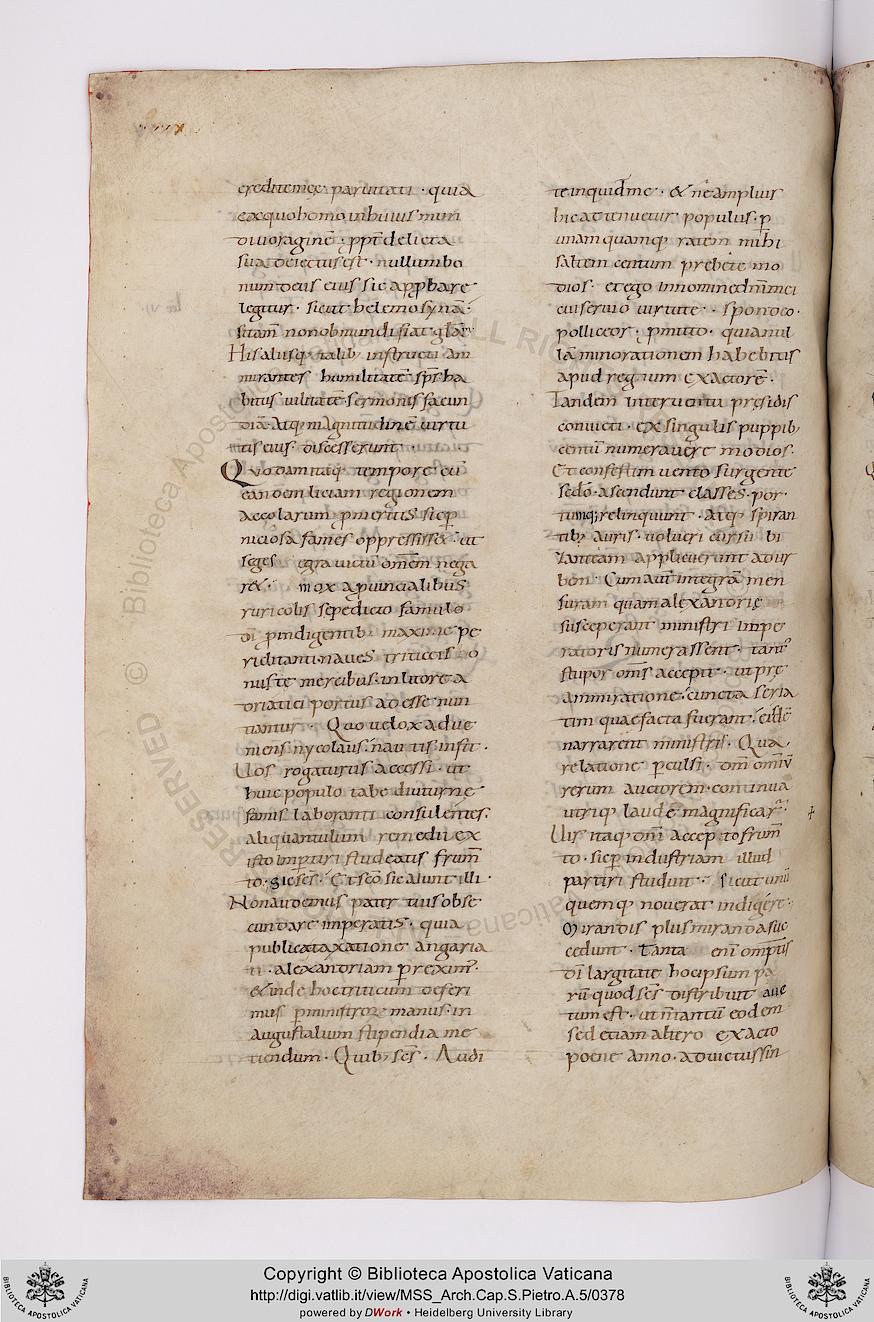 credite mee paruitati · quia
ex quo homo in huius mun
di uoraginē · ppt delicta
sua deiectus est · nullum bo
num deus eius sic approbare
legitur · sicut helemosynā ·
si tam̄ non ob mundi fiat glā
His aliisq; talib; instructi am
mirantes humilitatē sps̄ ha
bitus uilitatē · sermonis facun
diā · Atq; magnitudinē uirtu
tis eius · discesserunt ·
Quodam itaq; tempore · cū
eandem liciam regionem
accolarum pmeritis sic p̄
niciosa fames oppressisset · ut
seges egra uictū om̄em nega
ret · mox a puincialibus
ruricolis sepedicto famulo
dī p̄ indigentib; maxime pe
riclitanti · naues triticeis o
nuste mercibus · in litore a
driatici portus adesse nun
tiantur · Quo uelox adue
niens nycolaus · nautis infit ·
Uos rogaturus accessi · ut
huic populo tabe diuturne
famis laboranti consulentes ·
aliquantulum remedii ex
isto impertiri studeatis frum̄
to · Et sc̄o sic aiunt illi ·
Non audemus pater tuis obse
cundare imperatis · quia
publica taxatione angaria
ti · alexandriam p̄reximꝰ ·
& inde hoc triticum deferi
mus p̄ ministrorꝝ manus · in
augustalium stipendia me
tiendum · Quib; sc̄s · Audi
te inquid me · & ne amplius
hic adtenuetur populus · p̄
unam quamq; ratem mihi
saltem centum prebete mo
dios · et ego in nomine dn̄i mei
cui seruio uirtute · spondeo ·
polliceor · pmitto · quia nul
lā minorationem habebitis
apud regium exactorē ·
Tandem interuentu presidis
conuicti · ex singulis puppib;
centū numerauere modios ·
Et confestim uento surgente
secdō · ascendunt classes · por
tumq; relinquunt · Atq; spiran
tib; auris · uolucri cursu bi
zanteam applicuerunt ad ur
bem · Cum aut̄ integrā men
suram quam alexandrie
susceperant ministri impe
ratoris numerassent · tantꝰ
stupor om̄s accepit · ut pre
ammiratione · cuncta seria
tim quae facta fuerant · eidē
narrarent ministris · Qua
relatione p̄culsi · dm̄ omiū
rerum auctorem · continua
utriq; laude magnificar̄ ·
Uir itaq; dm̄i accepto frum̄
to · sic p̄ industriam illud
partiri studuit · sicut unū
quemq; nouerat indigere ·
Mirandis plus miranda suc
cedunt · Tanta eni omptis
dī largitate hoc ipsum pa
rū quod sc̄s distribuit auc
tum est · ut n̄ tantū eodem
sed etiam altero exacto
poene anno · ad uictus sin
Copyright © Biblioteca Apostolica Vaticana
http://digi.vatlib.it/view/MSS_Arch.Cap.S.Pietro.A.5/0378
powered by DWork • Heidelberg University Library